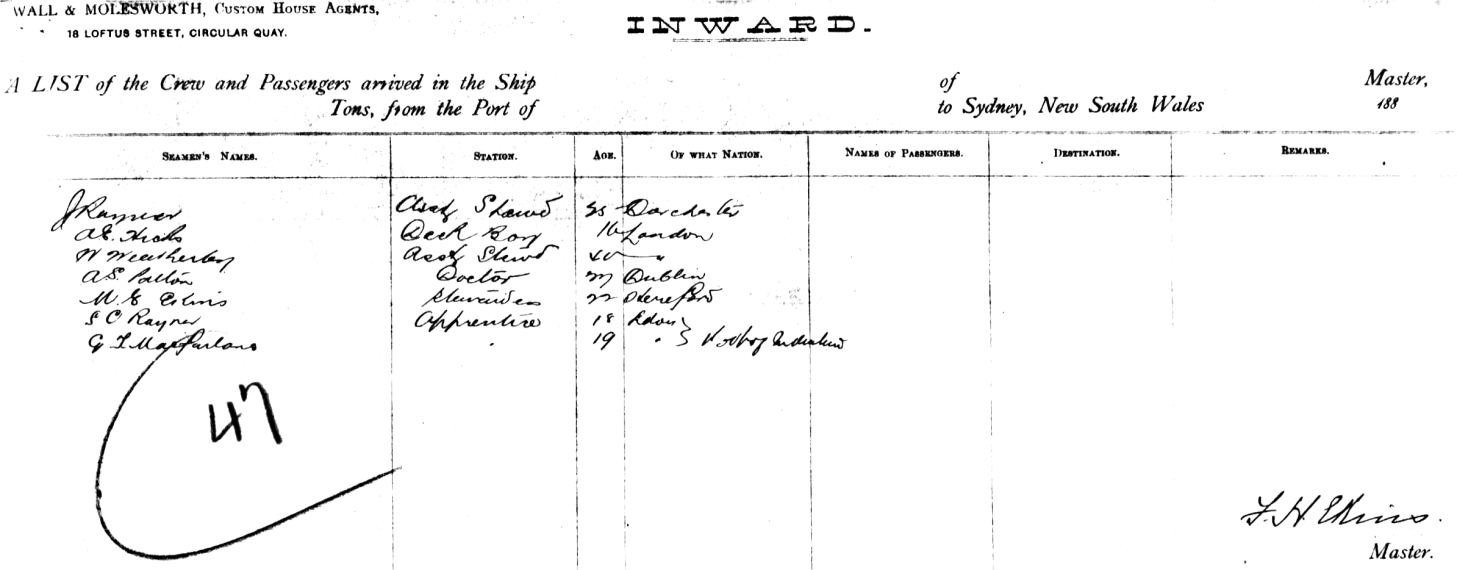 WALL & MOLESWORTH, CUSTOM HOUSE AGENTS,
18 LOFTUS STREET, CIRCULAR QUAY.
INWARD.
A LIST of the Crew and Passengers arrived in the Ship of Master,
Tons, from the Port of to Sydney, New South Wales 188
SEAMEN'S NAMES. STATION. AGE. OF WHAT NATION. NAMES OF PASSENGERS. DESTINATION. REMARKS.
J Rayner Asst Stewd 25 Dorchester
A.E. Hicks Deck Boy 16 London
W Weatherley Asst Stewd "
A.E. Doctor 27 Dublin
M. E Elkins Stewardess 22 Hereford
S C Rayner Apprentice 18 Ldon
G T MacFarlane " 19 "
47
F. H. Elkins.
Master.